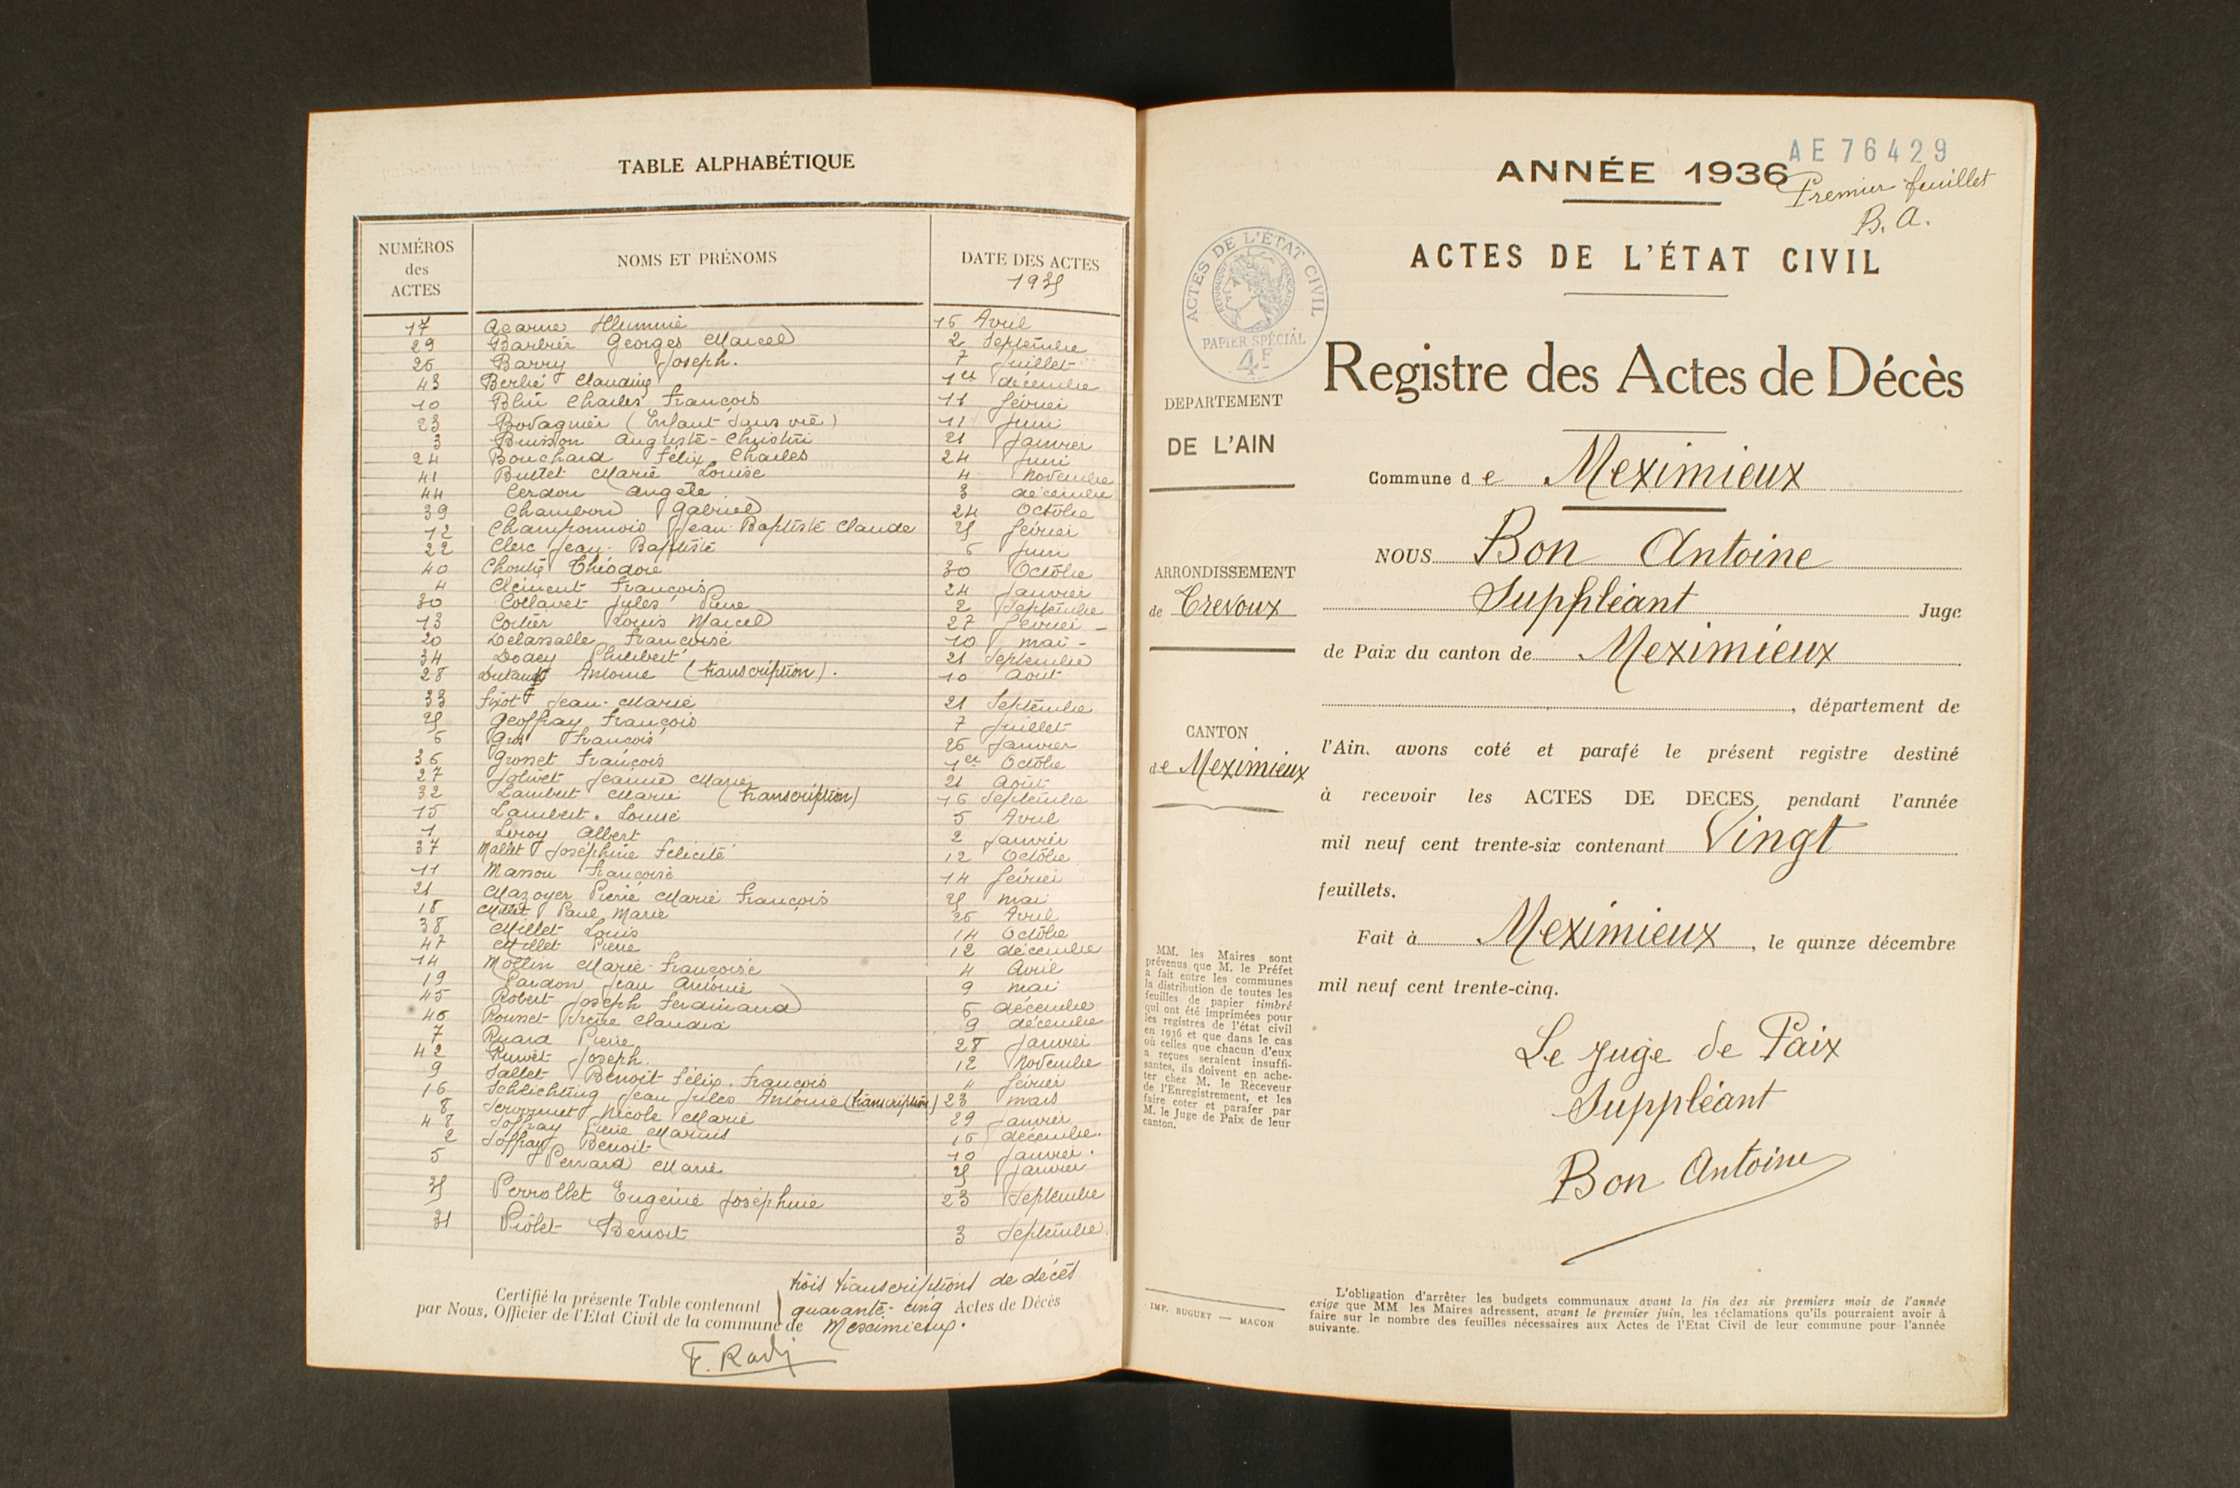 TABLE ALPHABÉTIQUE
NUMÉROS des ACTES
NOMS ET PRÉNOMS
DATE DES ACTES
1935
17 16 Avril
29 Barbier Georges Marcel 2 Septembre
26 Barry Joseph. 7 Juillet
43 Berlié Claudine 1er décembre
10 Blin Charles François 11 février
23 Bovagnier (Enfant sans vie) 11 Juin
3 Buisson Auguste-Christin 21 Janvier
24 Bouchard Félix Charles 24 Juin
41 Buttet Marie Louise 4 Novembre
44 Cerdon Angèle 3 décembre
39 Chambon Gabriel 24 Octobre
12 Championnois Jean-Baptiste Claude 25 février
22 Clerc Jean-Baptiste 6 Juin
40 Théodore 30 Octobre
4 Clément François 24 Janvier
30 Collavet Jules Pierre 2 Septembre
13 Cortier Louis Marcel 27 février -
20 Delassalle Françoise 10 mai -
34 Philibert 21 Septembre
28 Antoine (transcription). 10 Août
33 Fixot Jean-Marie 21 Septembre
25 Geoffray François 7 Juillet
6 Gros François 26 Janvier
36 Grosset François 1er Octobre
27 Jolivet Jeanne Marie 21 Août
32 Lambert Marie (transcription) 16 Septembre
15 Lambert. Louise 5 Avril
1 Leroy Albert 2 Janvier
37 Mallet Joséphine Félicité 12 Octobre
11 Masson Françoise 14 février
21 Mazoyer Pierre Marie François 25 mai
18 Millet Paul Marie 26 Avril
38 Millet Louis 14 Octobre
47 Millet Pierre 12 décembre
14 Mollin Marie-Françoise 4 Avril
19 Pardon Jean Antoine 9 mai
45 Robert Joseph Ferdinand 6 décembre
46 Rousset Pierre Claudia 9 décembre
7 Ruard Pierre 28 Janvier
42 Joseph. 12 Novembre
9 Sallet Benoit Félix. François 11 février
16 Schlichting Jean Jules Antoine (transcription) 23 mars
8 Nicole Marie 29 Janvier
48 Soffray Pierre Marius 16 décembre.
2 Soffray Benoit 10 Janvier.
5 Perrard Marie 25 Janvier
35 Perrollet Eugénie Joséphine 23 Septembre
31 Piolet Benoit 3 Septembre
trois transcriptions de décès
Certifié la présente Table contenant quarante-cinq Actes de Décès
par Nous, Officier de l'Etat Civil de la commune de Meximieux.
AE 76429
ANNÉE 1936
Premier feuillet
B. A.
ACTES DE L'ÉTAT CIVIL
ACTES DE L'ÉTAT CIVIL
RÉPUBLIQUE FRANÇAISE
PAPIER SPÉCIAL
4F
Registre des Actes de Décès
DEPARTEMENT
DE L'AIN
Commune de Meximieux
NOUS Bon Antoine
ARRONDISSEMENT
de Trevoux
Suppléant Juge
de Paix du canton de Meximieux
, département de
CANTON
de Meximieux
l'Ain, avons coté et parafé le présent registre destiné
à recevoir les ACTES DE DECES pendant l'année
mil neuf cent trente-six contenant Vingt
feuillets.
Fait à Meximieux, le quinze décembre
mil neuf cent trente-cinq.
MM. les Maires sont
prévenus que M. le Préfet
a fait entre les communes
la distribution de toutes les
feuilles de papier timbré
qui ont été imprimées pour
les registres de l'état civil
en 1936 et que dans le cas
où celles que chacun d'eux
a reçues seraient insuffi-
santes, ils doivent en ache-
ter chez M. le Receveur
de l'Enregistrement, et les
faire coter et parafer par
M. le Juge de Paix de leur
canton.
Le Juge de Paix
Suppléant
Bon Antoine
IMP. BUGUET — MACON
L'obligation d'arrêter les budgets communaux avant la fin des six premiers mois de l'année
exige que MM les Maires adressent, avant le premier juin, les réclamations qu'ils pourraient avoir à
faire sur le nombre des feuilles nécessaires aux Actes de l'Etat Civil de leur commune pour l'année
suivante.